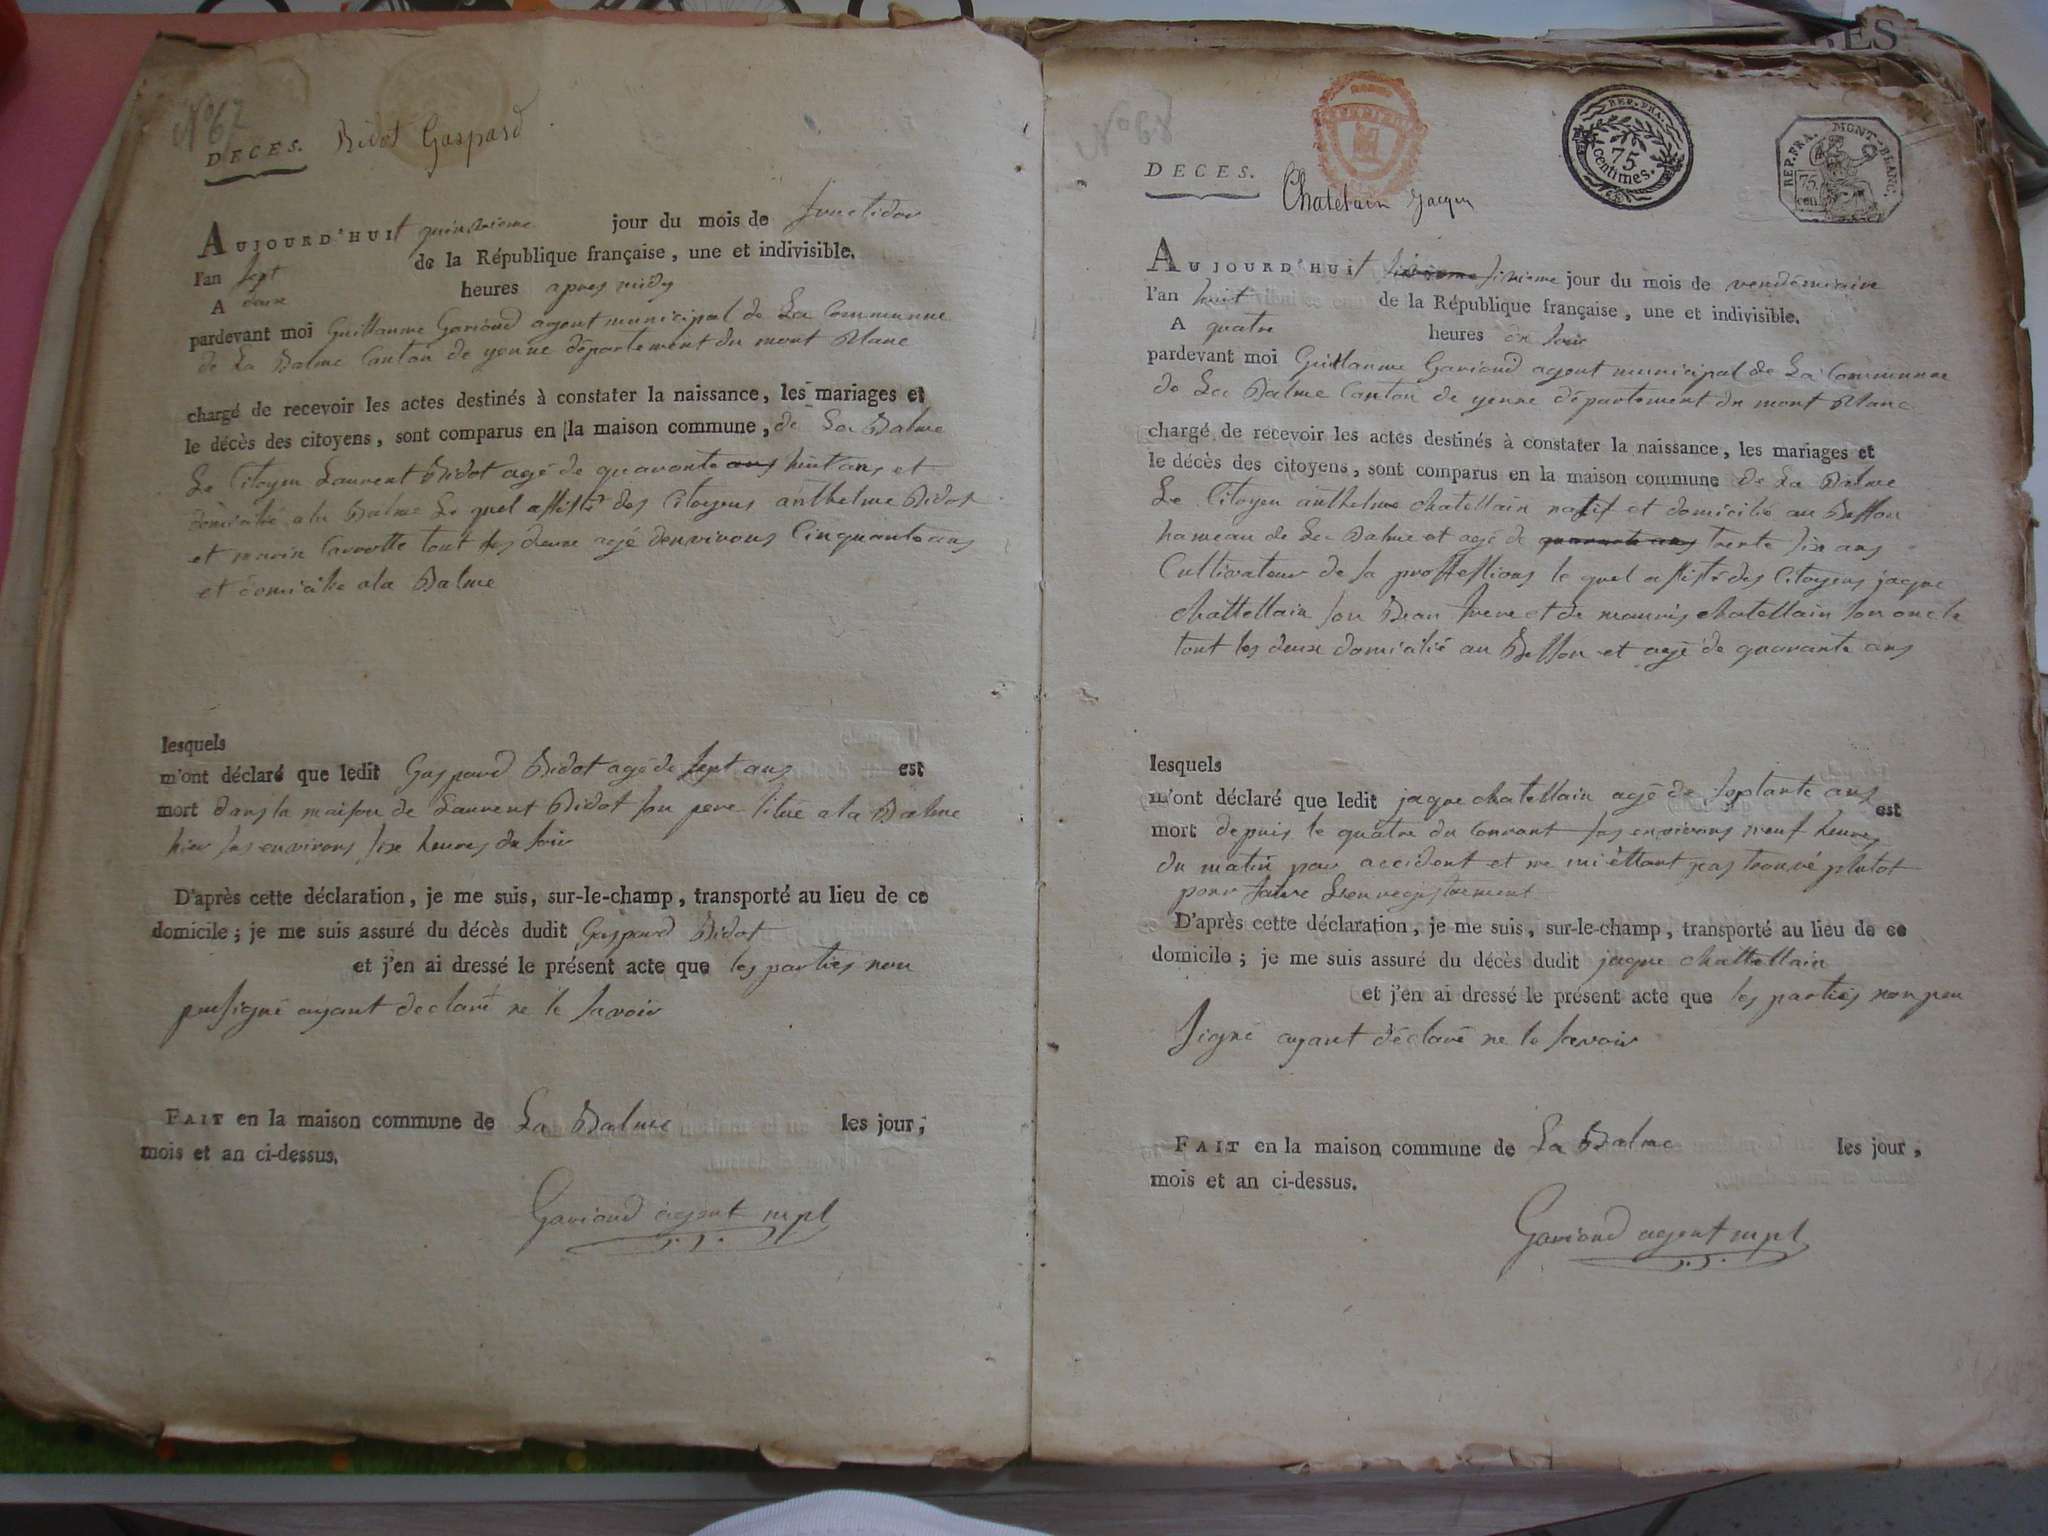 N° 67
DECES. Bidot Gaspard
AUJOURD'HUIt quinzieme jour du mois de fructidor
l'an sept de la République française, une et indivisible.
A deux heures apres midy
pardevant moi Guillaume Garioud agent municipal de La Commune
de La Balme Canton de yenne département du mont Blanc
chargé de recevoir les actes destinés à constater la naissance, les mariages et
le décès des citoyens, sont comparus en la maison commune, de La Balme
Le Citoyen Laurent Bidot agé de quarante ans huit ans et
domicilié a la Balme Le quel assisté des Citoyens anthelme Bidot
et tout les deux agé denvirons Cinquante ans
et domicilié a la Balme
lesquels
m'ont déclaré que ledit Gaspard Bidot agé de sept ans est
mort dans la maison de Laurent Bidot son pere situé a la Balme
hier les environs six heures du soir
D'après cette déclaration, je me suis, sur-le-champ, transporté au lieu de ce
domicile; je me suis assuré du décès dudit Gaspard Bidot
et j'en ai dressé le présent acte que les parties non
pusigné ayant declaré ne le savoir
FAIT en la maison commune de La Balme les jour,
mois et an ci-dessus.
Garioud agent mpl
N° 68
REP. FRA.
75
centimes.
REP. FRA. MONT-BLANC.
75.
cen.
DECES. Chatelain Jacque
AUJOURD'HUIt sixieme jour du mois de vendémiaire
l'an huit de la République française, une et indivisible.
A quatre heures du soir
pardevant moi Guillaume Garioud agent municipal de La Commune
de La Balme Canton de yenne département du mont Blanc
chargé de recevoir les actes destinés à constater la naissance, les mariages et
le décès des citoyens, sont comparus en la maison commune de La Balme
Le Citoyen anthelme chatellain natif et domicilié au Besson
hameau de La Balme et agé de quarante ans trente six ans
Cultivateur de sa proffessions le quel assisté des Citoyens jaque
chattellain son Beau frere et de mauris chatellain son oncle
tout les deux domicilié au Besson et agé de quarante ans
lesquels
m'ont déclaré que ledit jaque chatellain agé de soptante ans est
mort depuis le quatre du Courant les environs neuf heures
du matin par accident et ne mi éttant pas trouvé plutot
pour faire Lenregistrement
D'après cette déclaration, je me suis, sur-le-champ, transporté au lieu de ce
domicile; je me suis assuré du décès dudit jaque chattellain
et j'en ai dressé le présent acte que les parties non peu
signé ayant déclaré ne le savoir
FAIT en la maison commune de La Balme les jour,
mois et an ci-dessus.
Garioud agent mpl